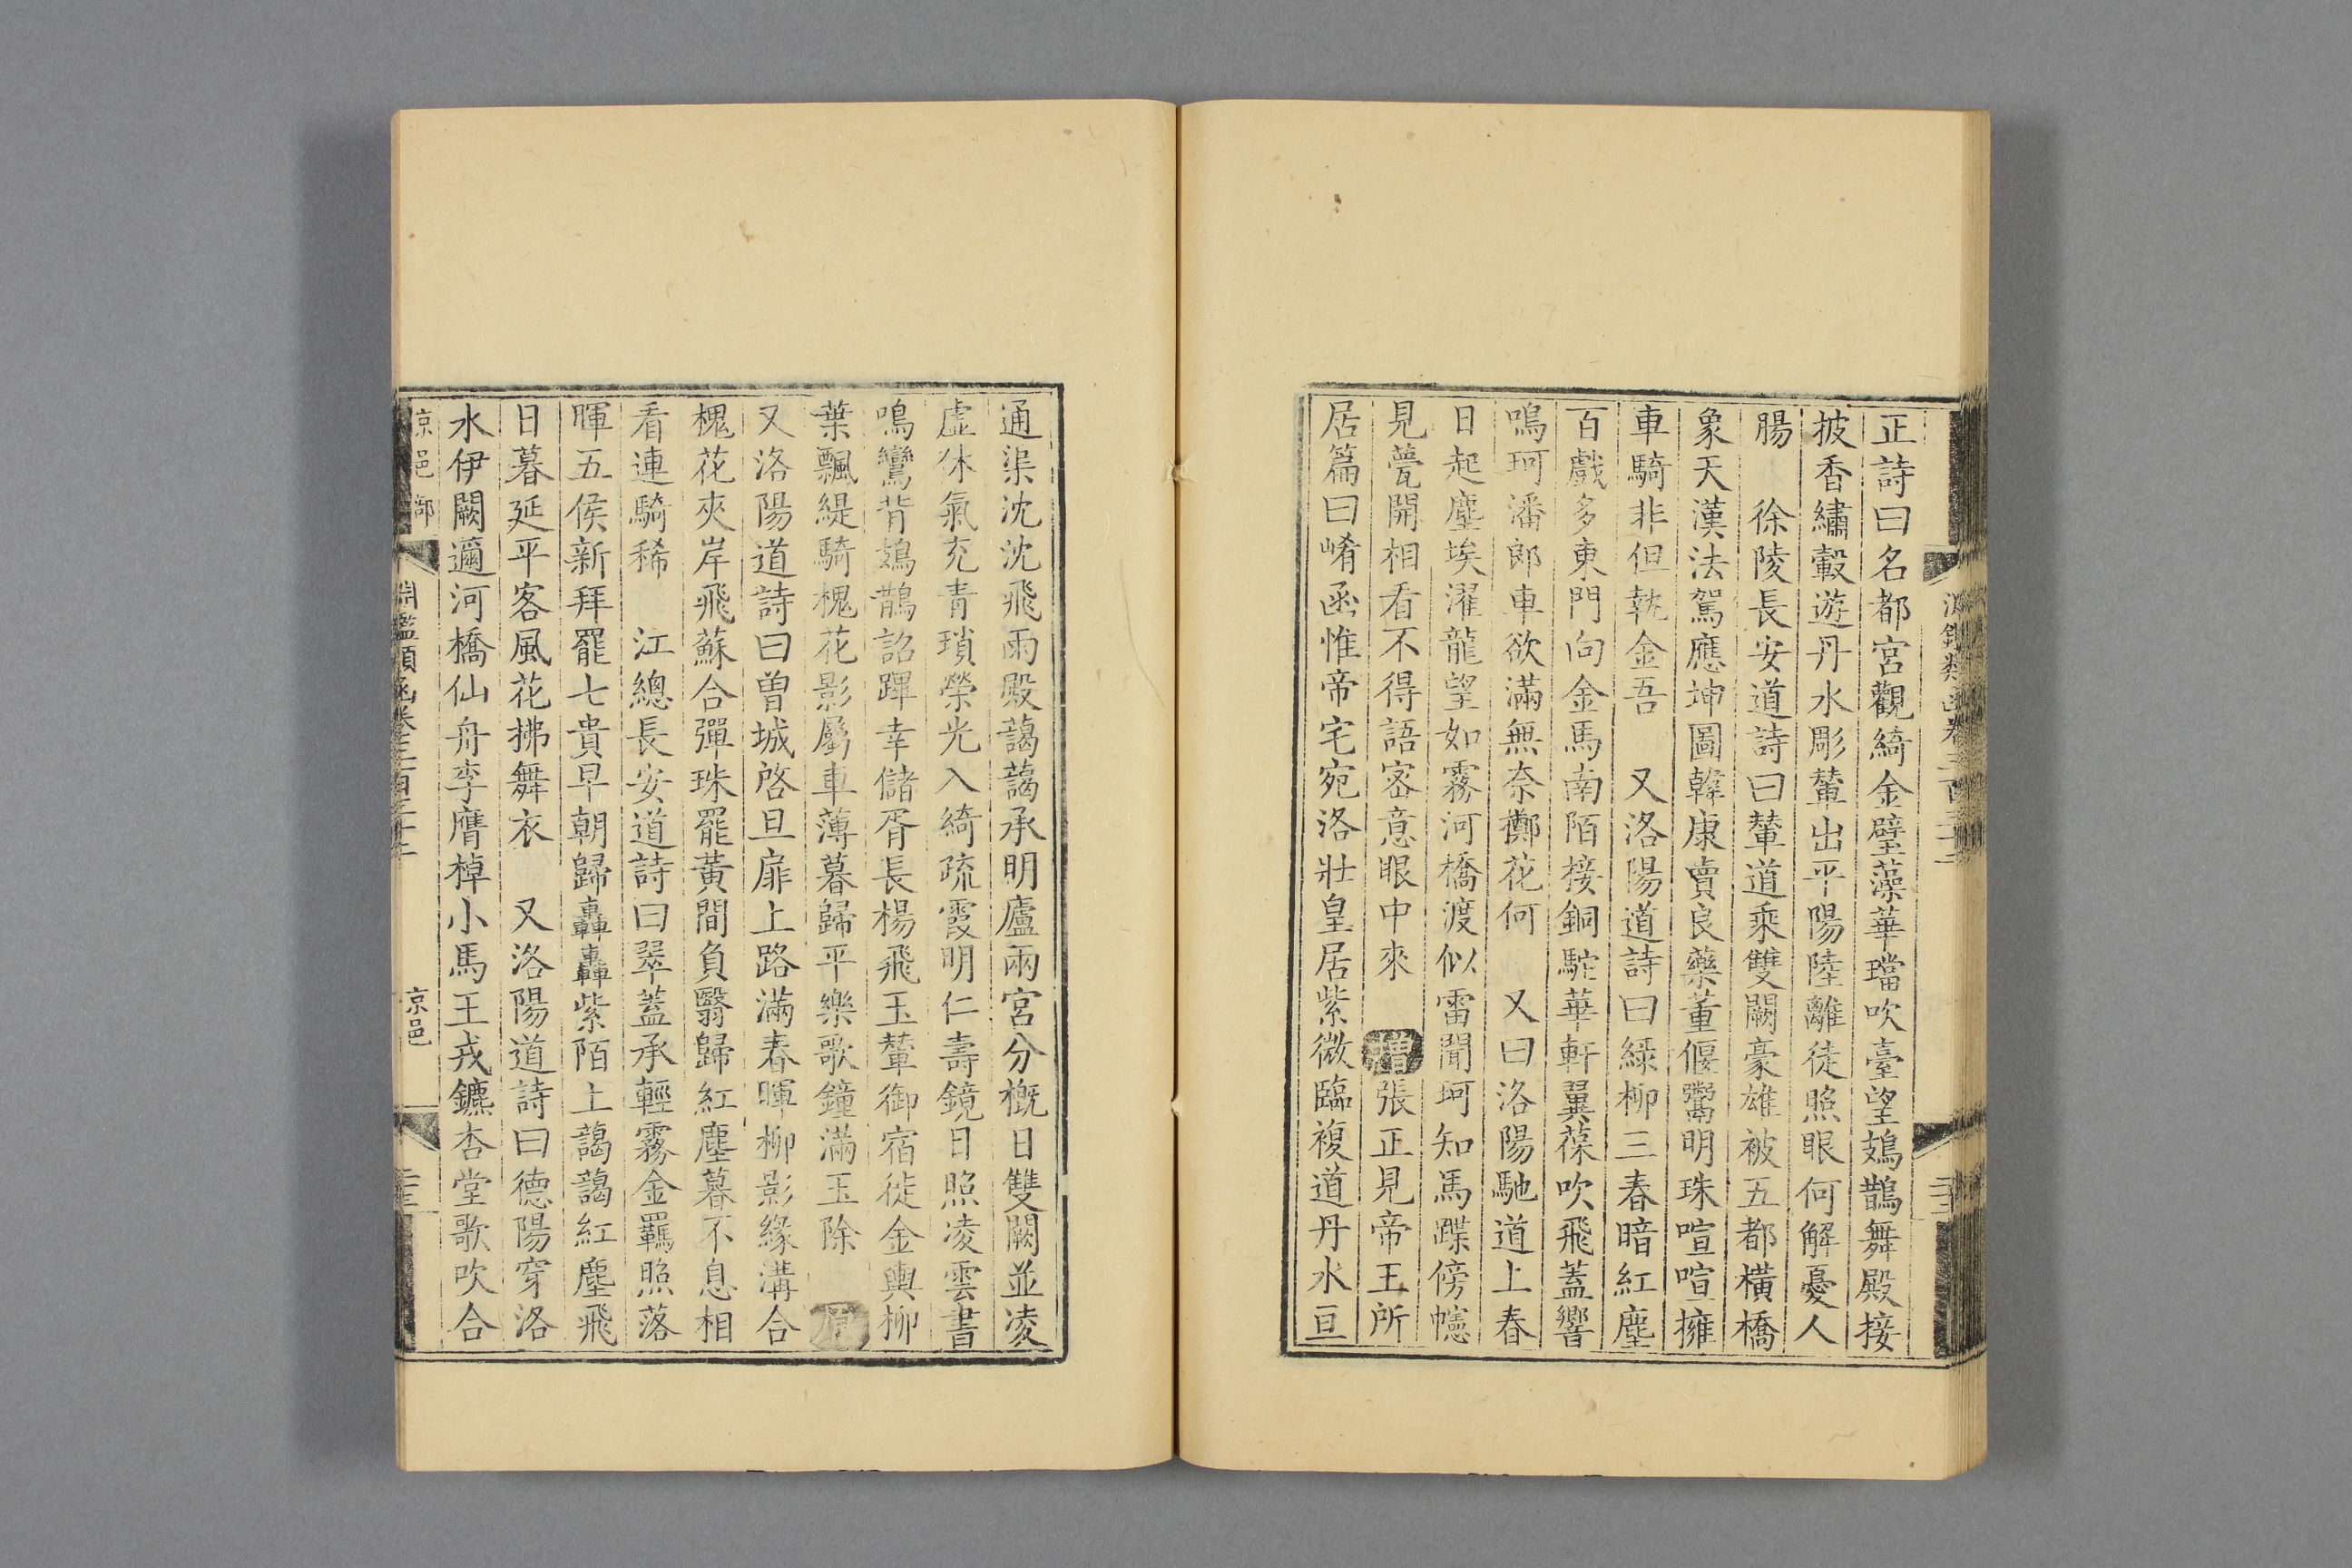 正詩曰名都宮觀綺金璧藻華璫吹臺望鳷鵲舞殿接
披香繡轂遊丹水彫輦出平陽陸離徒照眼何解憂人
腸　徐陵長安道詩曰輦道乘雙闕豪雄被五都橫橋
象天漢法駕應坤圖韓康賣良藥董偃鬻明珠喧喧擁
車騎非但執金吾　又洛陽道詩曰綠柳三春暗紅塵
百戲多東門向金馬南陌接銅駝華軒翼葆吹飛蓋響
鳴珂潘郎車欲滿無奈擲花何　又曰洛陽馳道上春
日起塵埃濯龍望如霧河橋渡似雷聞珂知馬蹀傍幰
見甍開相看不得語密意眼中來　增張正見帝王所
居篇曰崤函惟帝宅宛洛壯皇居紫微臨複道丹水亘
通渠沈沈飛雨殿藹藹承明廬兩宮分概日雙闕並凌
虛休氣充青瑣榮光入綺疏霞明仁壽鏡日照凌雲書
鳴鸞背鳷鵲詔蹕幸儲胥長楊飛玉輦御宿徙金輿柳
葉飄緹騎槐花影屬車薄暮歸平樂歌鐘滿玉除　原
又洛陽道詩曰曾城啓旦扉上路滿春暉柳影緣溝合
槐花夾岸飛蘇合彈珠罷黃間負翳歸紅塵暮不息相
看連騎稀　江總長安道詩曰翠蓋承輕霧金羈照落
暉五侯新拜罷七貴早朝歸轟轟紫陌上藹藹紅塵飛
日暮延平客風花拂舞衣　又洛陽道詩曰德陽穿洛
水伊闕邇河橋仙舟李膺棹小馬王戎鑣杏堂歌吹合
京邑部
淵鑑類函卷三百三十三
京邑